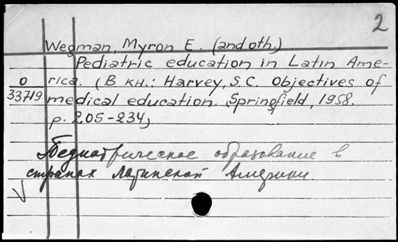 2
Wegman, Myron E. (and oth.)
Pediatric education in Latin Ame-
rica. (В кн.: Harvey, S.C. Objectives of
medical education. Springfield, 1958.
p. 205-234)
О
33719
Педиатрическое образование в
странах Латинской Америки